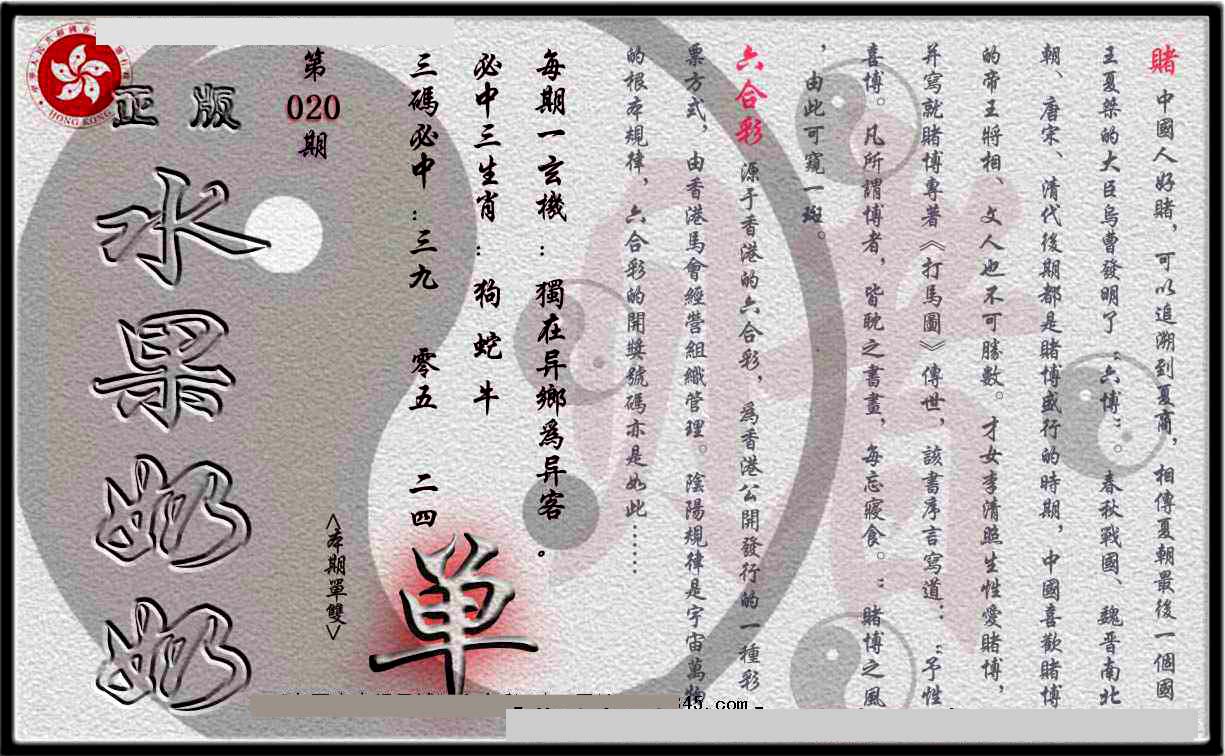 賭 中國人好賭，可以追溯到夏商，相傳夏朝最後一個國
王夏桀的大臣烏曹發明了“六博”。春秋戰國、魏晋南北
朝、唐宋、清代後期都是賭博盛行的時期，中國喜歡賭博
的帝王將相、文人也不可勝數。才女李清照生性愛賭博，
并寫就賭博專著《打馬圖》傳世，該書序言寫道：“予性
喜博。凡所謂博者，皆耽之書畫，每忘寢食。”賭博之風
，由此可窺一斑。
六合彩 源于香港的六合彩，爲香港公開發行的一種彩
票方式，由香港馬會經營組織管理。陰陽規律是宇宙萬物
的根本規律，六合彩的開獎號碼亦是如此……
每期一玄機：獨在异鄉爲异客。
必中三生肖：狗 蛇 牛
三碼必中：三九 零五 二四
單
<本期單雙>
第020期
正版
水果奶奶
HONG KONG
345.com